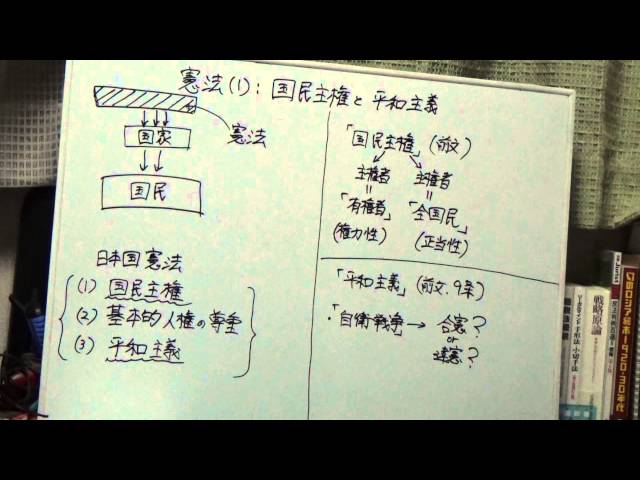 憲法(1): 国民主権と平和主義
憲法
国家
国民
日本国憲法
(1) 国民主権
(2) 基本的人権の尊重
(3) 平和主義
「国民主権」(前文)
主権者 主権者
「有権者」 「全国民」
(権力性) (正当性)
「平和主義」(前文、9条)
・「自衛戦争」→ 合憲?
or
違憲?
戦略原論
幻のロシア絵本1920-30年代